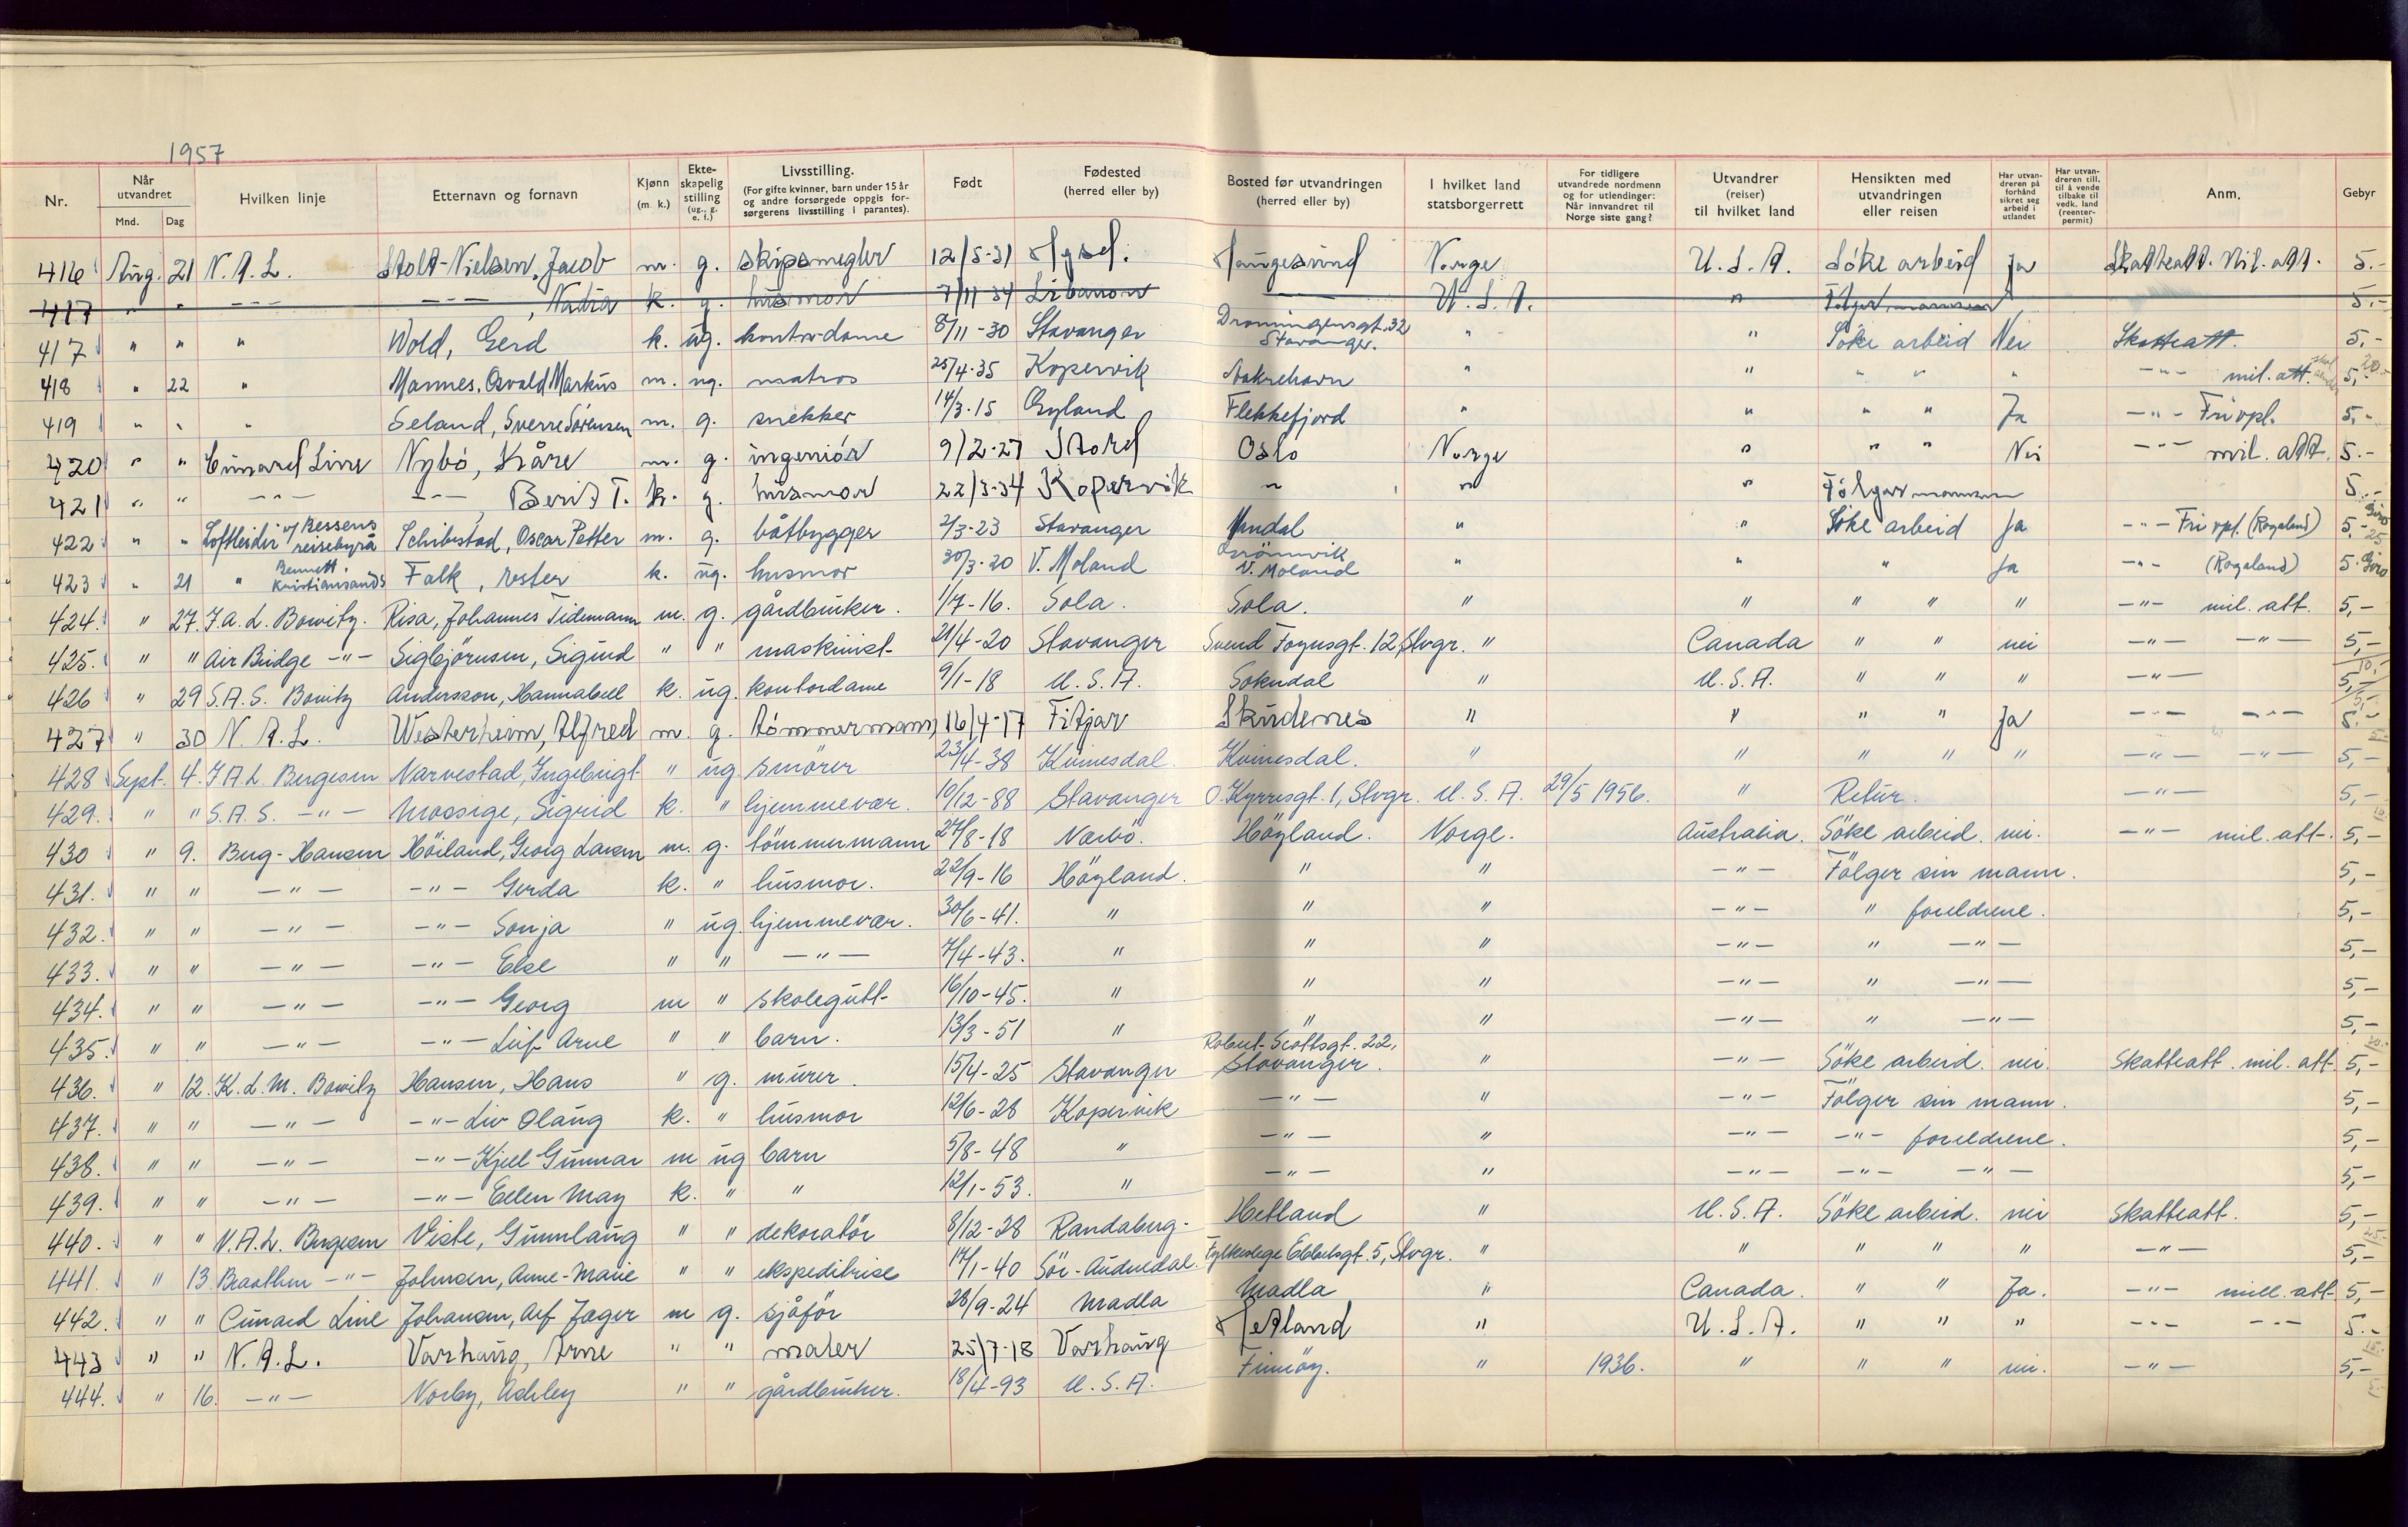 1957
Nr. Når utvandret Mnd. Dag Hvilken linje Etternavn og fornavn Kjønn (m. k.) Ekteskapelig stilling (ug., g. e. f.) Livsstilling. (For gifte kvinner, barn under 15 år og andre forsørgede oppgis forsørgerens livsstilling i parantes). Født Fødested (herred eller by) Bosted før utvandringen (herred eller by) I hvilket land statsborgerrett For tidligere utvandrede nordmenn og for utlendinger: Når innvandret til Norge siste gang? Utvandrer (reiser) til hvilket land Hensikten med utvandringen eller reisen Har utvandreren på forhånd sikret seg arbeid i utlandet Har utvandreren till. til å vende tilbake til vedk. land (reenterpermit) Anm. Gebyr
416 Aug. 21 N.A.L. Stolt-Nielsen, Jacob m. g. skipsmegler 12/5-31 Haugesund Norge U.S.A. Söke arbeid Ja Skatteatt. Mil. att. 5.-
417 " " -"- -"-, Nadia k. g. husmor 7/11 34 Libanon U.S.A. " Følger mannen 5.-
417 " " " Wold, Gerd k. ug. kontordame 8/11-30 Stavanger Dronningensgt. 32 Stavanger. " " Söke arbeid Nei Skatteatt. 5,-
418 " 22 " Mannes, Osvald Markus m. ug. matros 25/4-35 Kopervik Aakrehavn " " " " " -"- mil. att. 5,-
419 " " " Seland, Sverre Sörensen m. g. snekker 14/3-15 Gyland Flekkefjord " " " " Ja -"- Fri vpl. 5,-
420 " " Cunard Line Nybö, Kåre m. g. ingeniör 9/2-27 Stord Oslo Norge " " " Nei -"- mil. att. 5.-
421 " " -"- -"-, Berit T. k. g. husmor 22/3-34 Kopervik " " " Følger mannen 5.-
422 " " Loftleidir v/ Bessens reisebyrå Schibstad, Oscar Petter m. g. båtbygger 2/3-23 Stavanger Mandal " " Söke arbeid Ja -"- Fri vpl. (Rogaland) 5.- Giro
423 " 21 " Bennett Kristiansands Falk, Ester k. ug. husmor 30/3-20 V. Moland V. Moland " " " Ja -"- (Rogaland) 5. Giro
424. " 27. F.A.L. Bowitz. Risa, Johannes Tidemann m. g. gårdbruker. 1/7-16. Sola. Sola. " " " " " -"- mil. att. 5,-
425. " " Air Bridge -"- Sigbjörnsen, Sigurd " " maskinist 21/4-20 Stavanger Svend Foynsgt. 12, Stvgr. " Canada " " nei -"- -"- 5,-
426 " 29 S.A.S. Bowitz Andersson, Hannabell k. ug. kontordame 9/1-18 U.S.A. Sokndal " U.S.A. " " " -"- 5,-
427 " 30 N.A.L. Westerheim, Alfred m. g. tömmermann 16/4-17 Fitjar Skudenes " " " " Ja -"- -"- 5.-
428 Sept. 4. F.A.L. Bergesen Narvestad, Ingebrigt " ug smörer 23/4-38 Kvinesdal. Kvinesdal. " " " " " -"- -"- 5,-
429. " " S.A.S. -"- Mossige, Sigrid k. " hjemmevær. 10/12-88 Stavanger O. Kyrresgt. 1, Stvgr. U.S.A. 29/5 1956. " Retur. -"- 5,-
430 " 9. Berg-Hansen Höiland, Georg Larsen m. g. tömmermann 27/8-18 Nærbö. Höyland. Norge. Australia. Söke arbeid. nei. -"- mil. att. 5,-
431. " " -"- -"- Gerda k. " husmor. 22/9-16 Höyland. " " -"- Fölger sin mann. 5,-
432. " " -"- -"- Sonja " ug hjemmevær. 30/6-41. " " " -"- " foreldrene. 5,-
433. " " -"- -"- Else " " -"- 7/4-43. " " " -"- " -"- 5,-
434. " " -"- -"- Georg m " skolegutt 16/10-45. " " " -"- " -"- 5,-
435. " " -"- -"- Leif Arne " " barn. 13/3-51 " " " -"- " -"- 5,-
436. " 12. K.L.M. Bowitz Hansen, Hans " g. murer. 15/4-25 Stavanger Robert Scottsgt. 22, Stavanger. " -"- Söke arbeid. nei. Skatteatt. mil. att. 5,-
437. " " -"- -"- Liv Olaug k. " husmor 12/6-28 Kopervik -"- " -"- Fölger sin mann. 5,-
438. " " -"- -"- Kjell Gunnar m ug barn 5/8-48 " -"- " -"- -"- foreldrene. 5,-
439. " " -"- -"- Ellen May k. " " 12/1-53. " -"- " -"- -"- -"- 5,-
440. " " N.A.L. Bergesen Viste, Gunnlaug " " dekoratör 8/12-28 Randaberg. Hetland " U.S.A. Söke arbeid. nei Skatteatt. 5,-
441. " 13 Braathen -"- Johnsen, Anne-Marie " " ekspeditrise 17/1-40 Sör-Audnedal. Fylkeslege Ebbelsgt. 5, Stvgr. " " " " " -"- 5,-
442. " " Cunard Line Johansen, Alf Jager m g. sjåför 28/9-24 Madla Madla " Canada. " " Ja. -"- mill. att. 5,-
443 " " N.A.L. Varhaug, Arne " " maler 25/7-18 Varhaug Hetland " U.S.A. " " " -"- -"- 5.-
444. " 16. -"- Norby, Adley " " gårdbruker. 18/4-93 U.S.A. Finnöy. " 1936. " " " nei. -"- 5,-